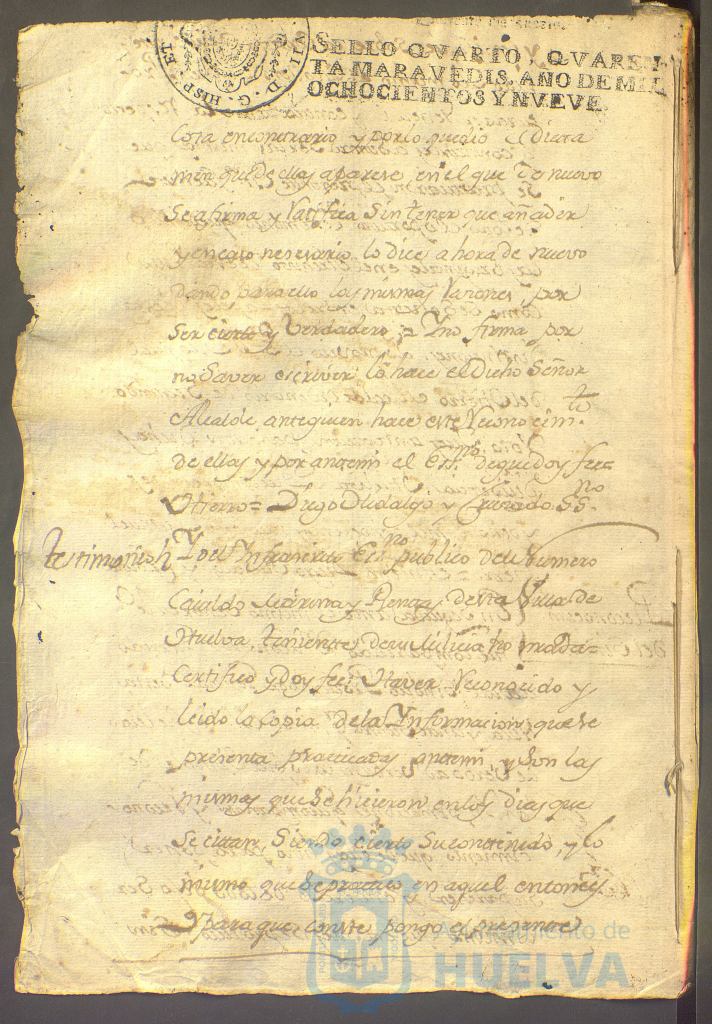 VII. D. G. HISP. ET
SELLO QVARTO, QVAREN
TA MARAVEDIS, AÑO DE MIL
OCHOCIENTOS Y NVEVE.
Cosa encontrario y por lo querio el dicta
men que de ellas aparese en el que De nuevo
Se afirma y Ratifica Sin tener que añadir
y en caso nesesario lo dice ahora de nuevo
dando para ello las mismas Razones por
Ser cierto y Verdadero, y no firma por
no Saver escriver lo hace el Dicho Señor
Alcalde, ante quien hace este Reconocim.to
de ellas y por antemi el Es.no de que doy fee=
Utierro= Diego Hidalgo y Jurado SS.no
testimonio Yo el Infrascrito Es.no publico del Numero
Marina y Rentas, de esta Villa de
Huelva, teniente de su Milicia honrrada=
Certifico y doy fee: Haver Reconocido y
leido la Copia de la Informacion, que se
presenta practicada antemi, y son las
mismas que se hicieron en los dias que
se citan, Siendo cierto Su contenido, y lo
mismo que se practico en aquel entonces
Y para que conste pongo el presente
Ayuntamiento de
HUELVA